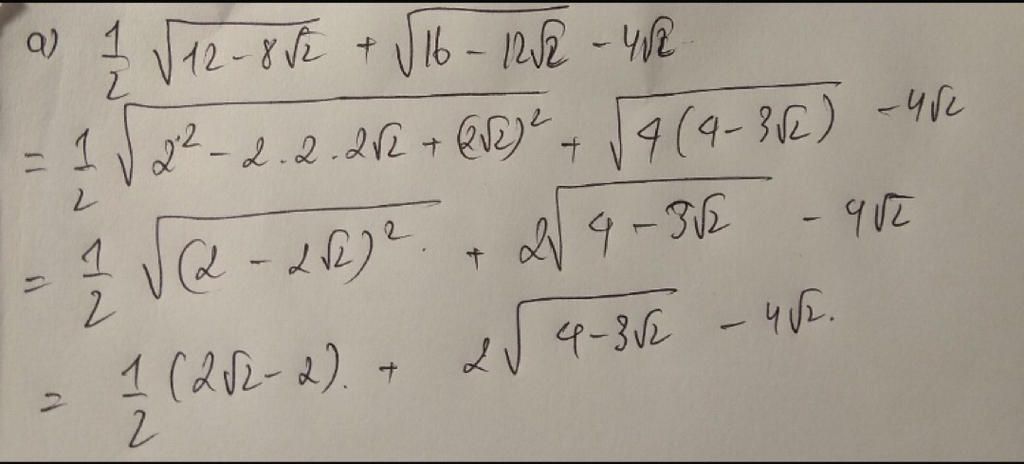 a) 1/2 √(12-8√2) + √(16-12√2) - 4√2
= 1/2 √(2² - 2.2.2√2 + (2√2)²) + √(4(4-3√2)) - 4√2
= 1/2 √((2 - 2√2)²) + 2√(4-3√2) - 4√2
= 1/2 (2√2-2). + 2√(4-3√2) - 4√2.